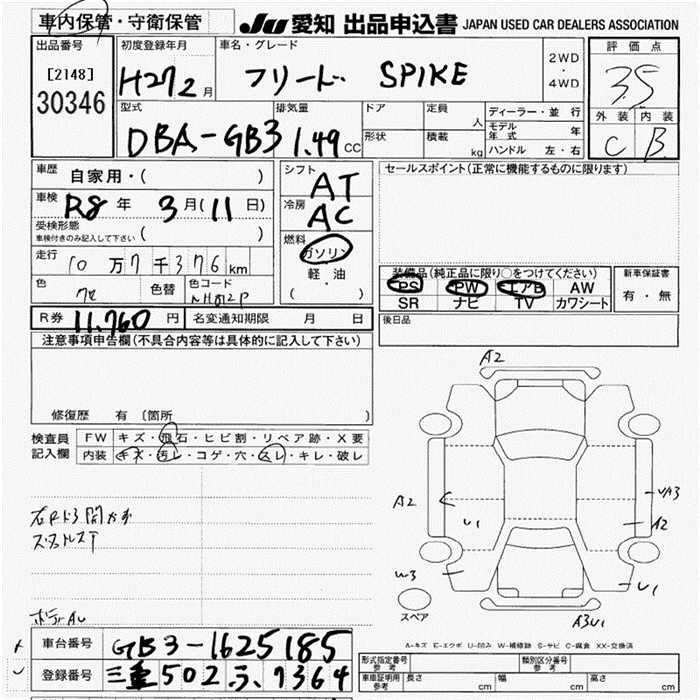 車内保管・守衛保管
JU 愛知 出品申込書 JAPAN USED CAR DEALERS ASSOCIATION
出品番号
[2148]
30346
初度登録年月
H27 2 月
車名・グレード
フリード SPIKE
2WD
・
4WD
評価点
3.5
外装 内装
C B
型式
DBA-GB3
排気量
1.49 CC
ドア
定員
人
形状
積載
kg
ディーラー・並行
モデル年式 年
ハンドル 左・右
車歴
自家用・( )
車検
R8 年 3 月(11 日)
受検形態
車検付きのみ記入して下さい ( )
走行
10 万 7 千 376 km
色
色替
色コード
NH812P
シフト
AT
冷房
AC
燃料
ガソリン
軽・油
( )
セールスポイント(正常に機能するものに限ります)
装備品(純正品に限り○をつけてください)
PS PW エアB AW
SR ナビ TV カワシート
新車保証書
有・無
R券 11,760 円
名変通知期限 月 日
後日品
注意事項申告欄(不具合内容等は具体的に記入して下さい)
修復歴 有 (箇所 )
検査員
記入欄
FW キズ・飛石・ヒビ割・リペア跡・X要
内装 キズ・汚レ・コゲ・穴・スレ・キレ・破レ
A2
A2
U1
UA3
A2
W3
U1
A3U1
スペア
A-キズ E-エクボ U-凹み W-補修跡 S-サビ C-腐食 XX-交換済
車台番号 GB3-1625185
登録番号 三重 502 ふ 7364
形式指定番号
参考
類別区分番号
参考
車車証明用
参考
長さ cm 幅 cm 高さ cm